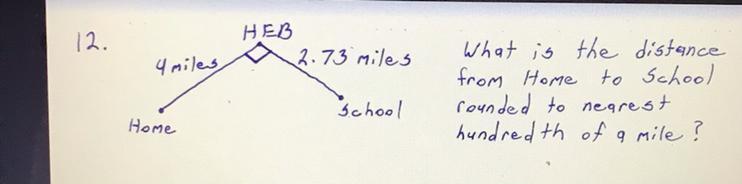 12.
HEB
4 miles
2.73 miles
Home
School
What is the distance
from Home to School
rounded to nearest
hundredth of a mile?